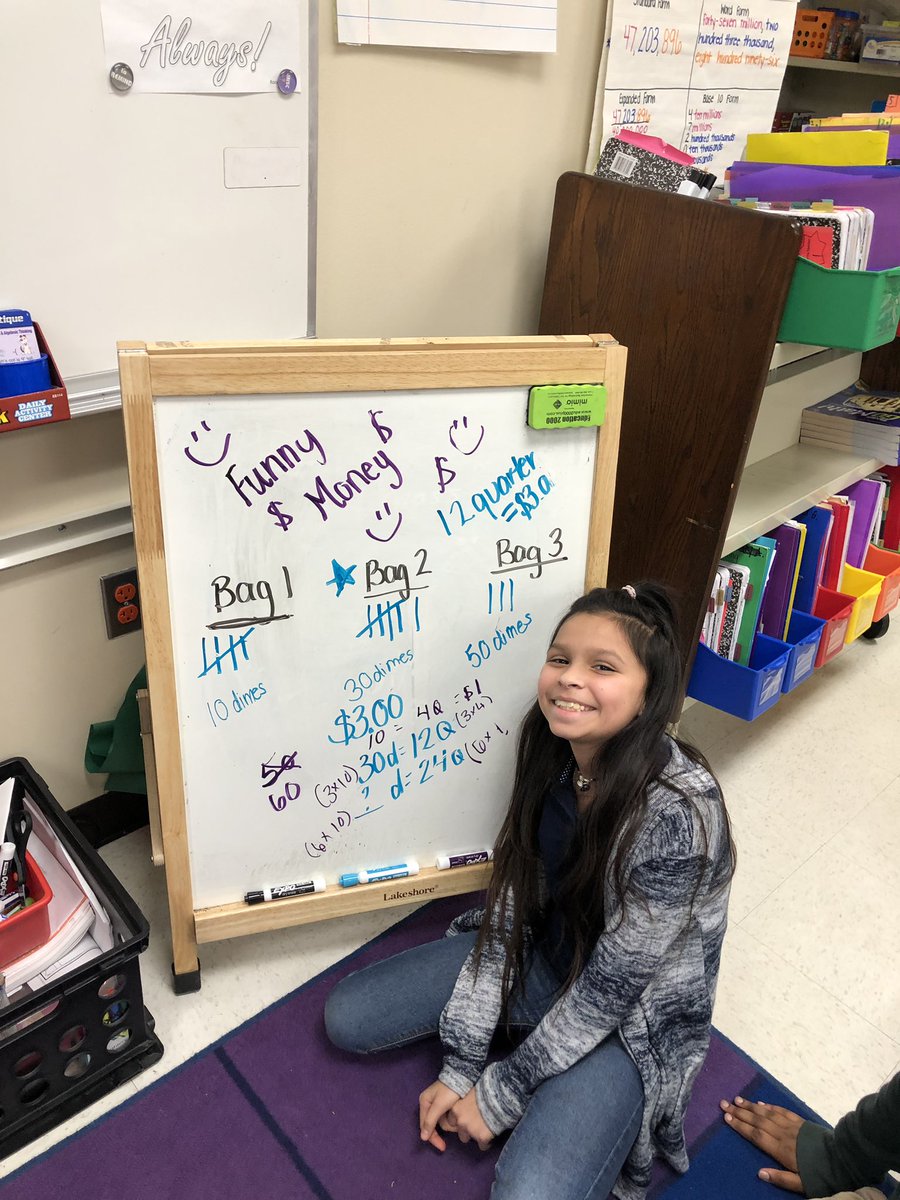 Always!
Standard Form
Word Form
47,203,896
Forty-seven million, two
hundred three thousand,
eight hundred ninety-six
Expanded Form
47,203,896
Base 10 Form
4 ten millions
7 millions
2 hundred thousands
0 ten thousands
DAILY
ACTIVITY
CENTER
mimio
Education 2000
Funny $
$ Money $
12 quarter
= $3.0
Bag 1
Bag 2
Bag 3
10 dimes
30 dimes
50 dimes
$3.00
10 = 4Q = $1
(3x10) 30d = 12Q (3x4)
(6x10) ? d = 24Q (6x
50
60
Lakeshore